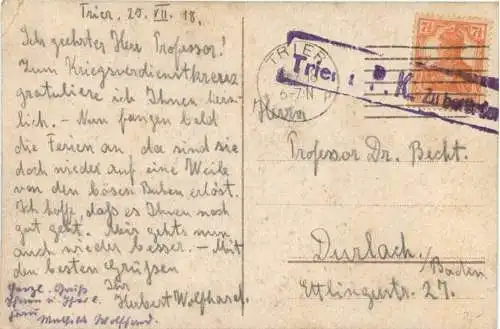 Trier, 20. VII. 18.
Sehr geehrter Herr Professor!
Zum Kriegsverdienstkreuz
gratuliere ich Ihnen herz-
lich. - Nun fangen bald
die Ferien an da sind sie
doch wieder auf eine Weile
von den bösen Buben erlöst.
Ich hoffe, daß es Ihnen noch
gut geht. Mir gehts nun
auch wieder besser. - Mit
den besten Grüßen
Ihr
Herbert Wolfhard.
Herzl. Grüße
Ihnen u. Ihrer l.
Frau
Wolfhard.
TRIER
6-7 N
7½
7½
Trier: P. K.
Zu befördern
Herrn
Professor Dr. Becht.
Durlach/
Baden
Ettlingerstr. 27.